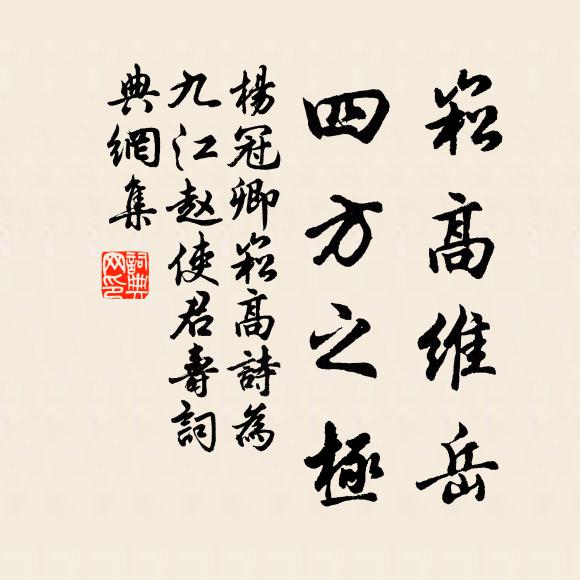 崧高維岳
四方之極
楊冠卿崧高詩為
九江赵使君壽詞
典網集
詞典網印